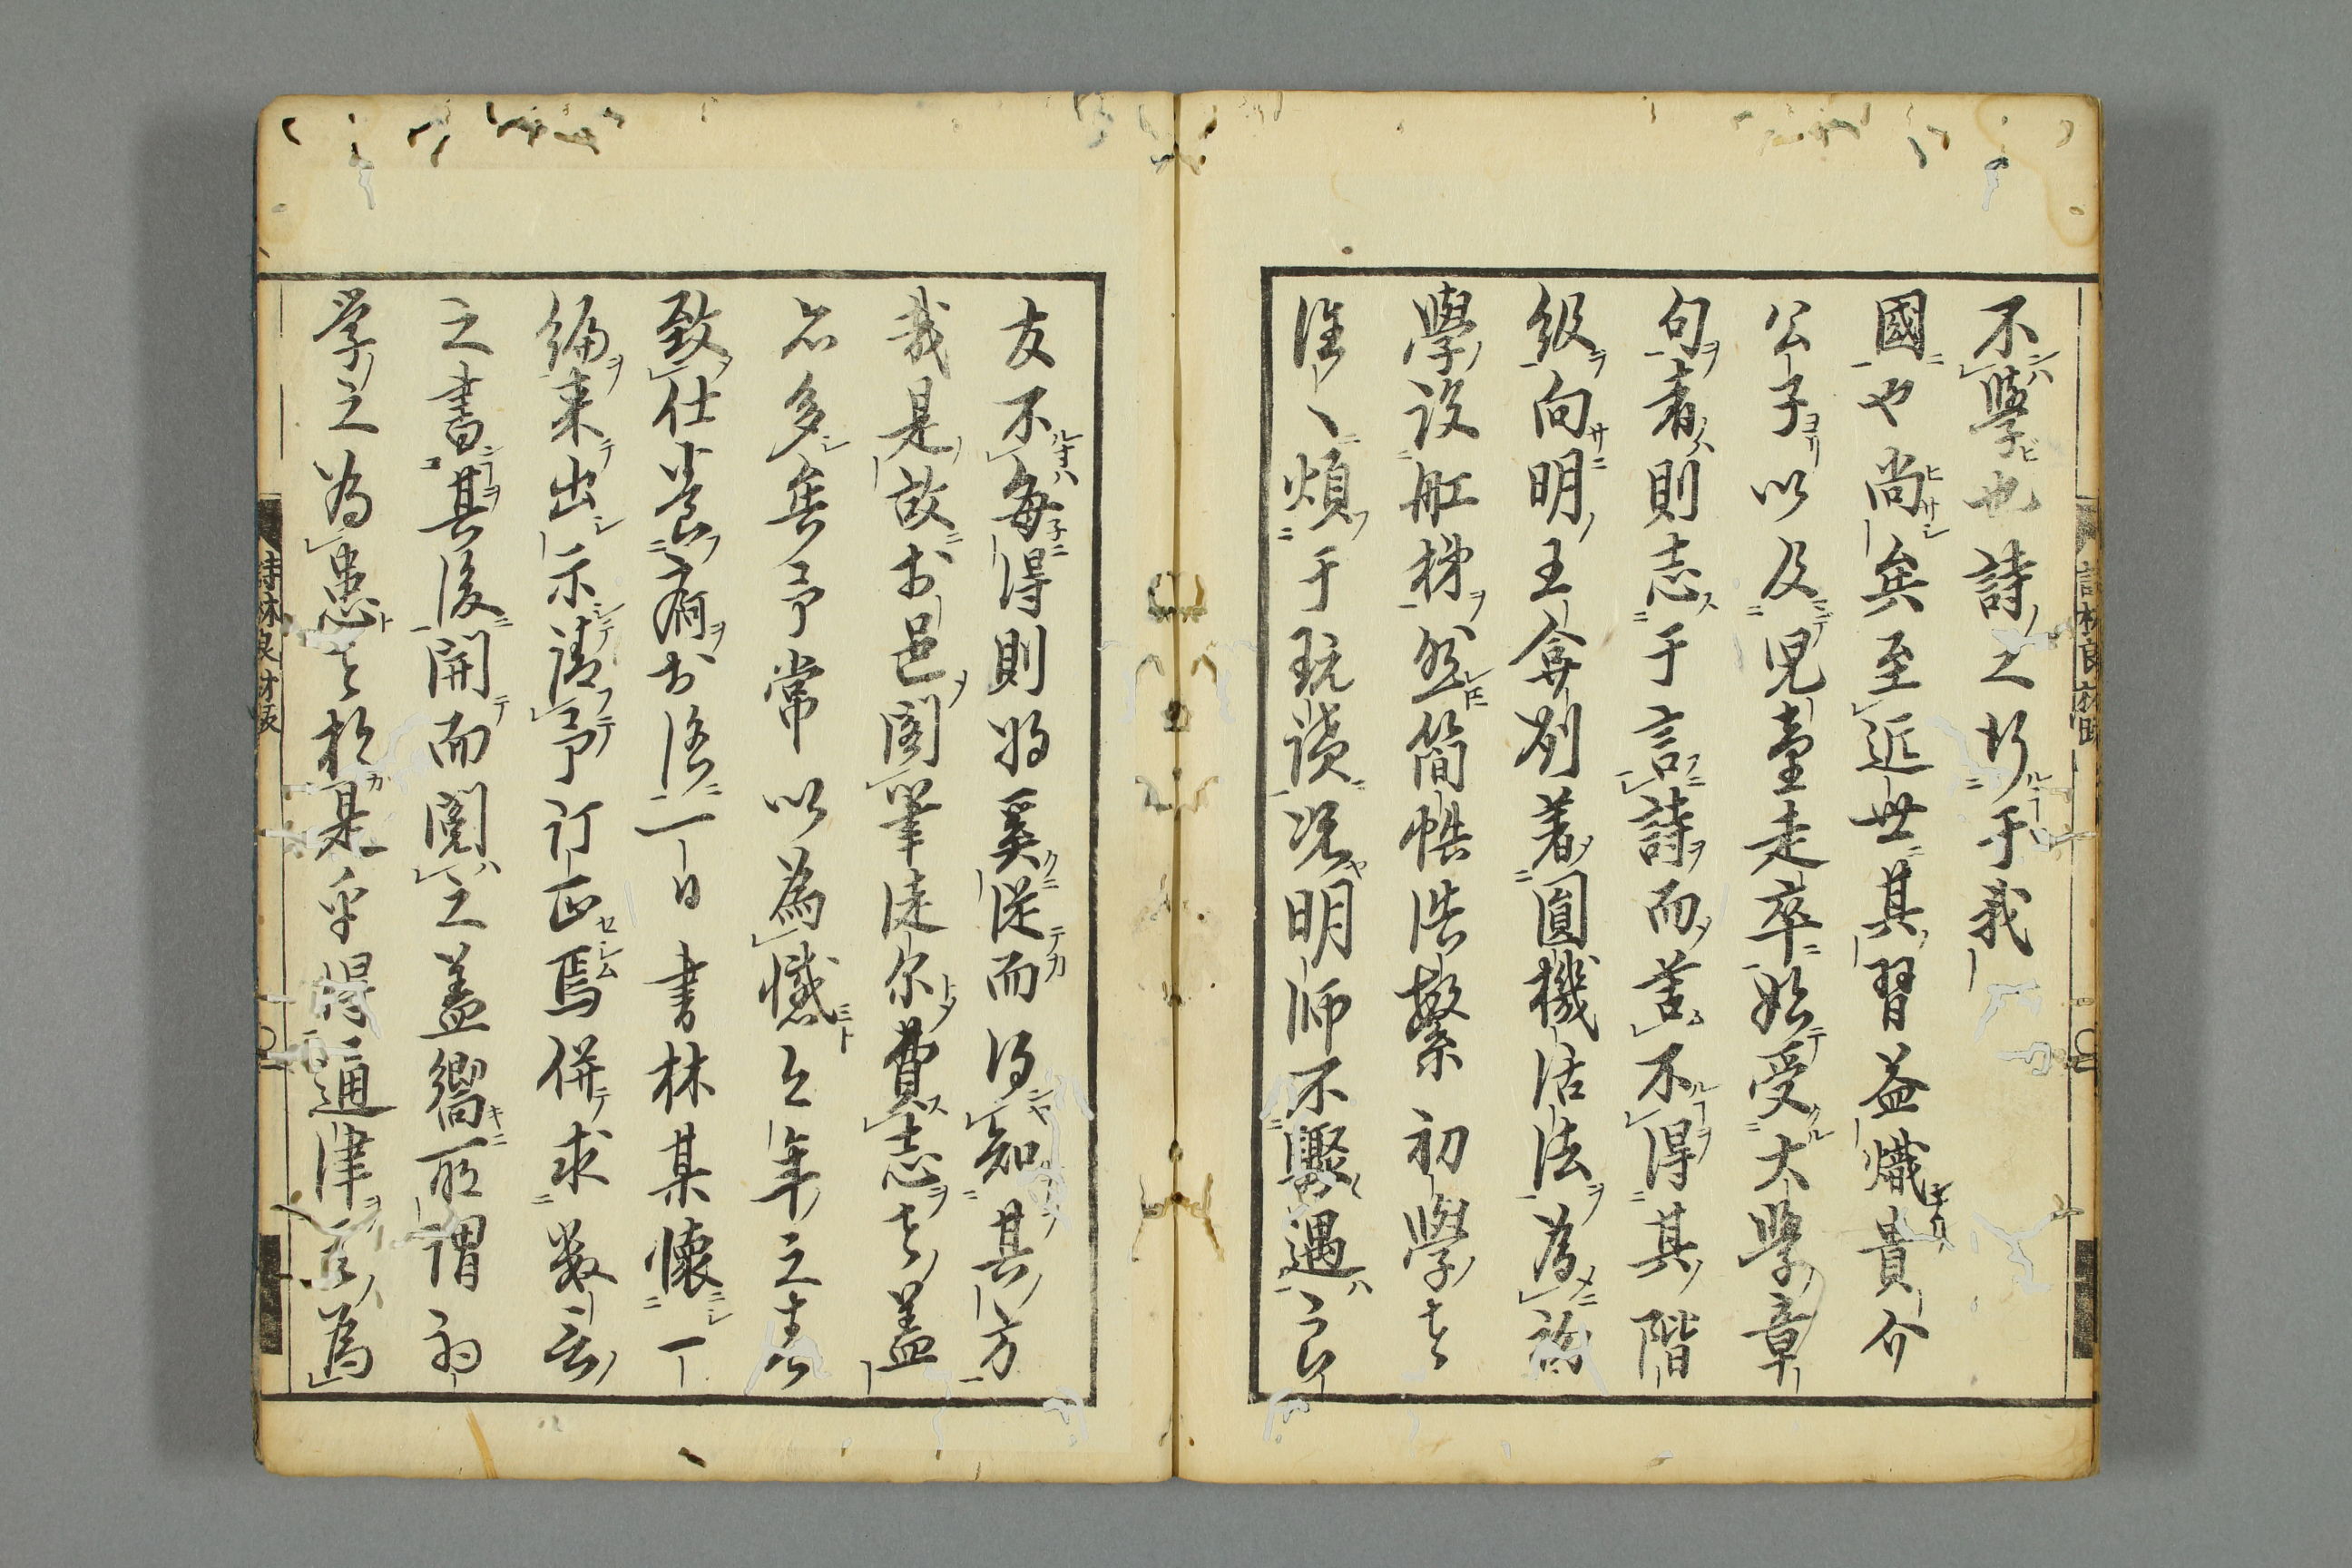 不學也詩之於于我
國也尚矣至近世其習益熾貴介
公子以及児童走卒始受大學章
句者則志于言詩而苦不得其階
級向明王弇刕著圓機活法為初
學設舩梯然簡帙浩繁初學者
往〻煩于玩讀况明師不驟遇良
友不每得則將奚從而得知其方
哉是故於邑閣筆徒尔費志者盖
不多矣予常以為憾之年之春
致仕養痾於洛一日書林某懷一
編来出示請予訂正焉併求數言
之書其後開而閲之盖嚮所謂初
學之為患者於是乎得通津矣為